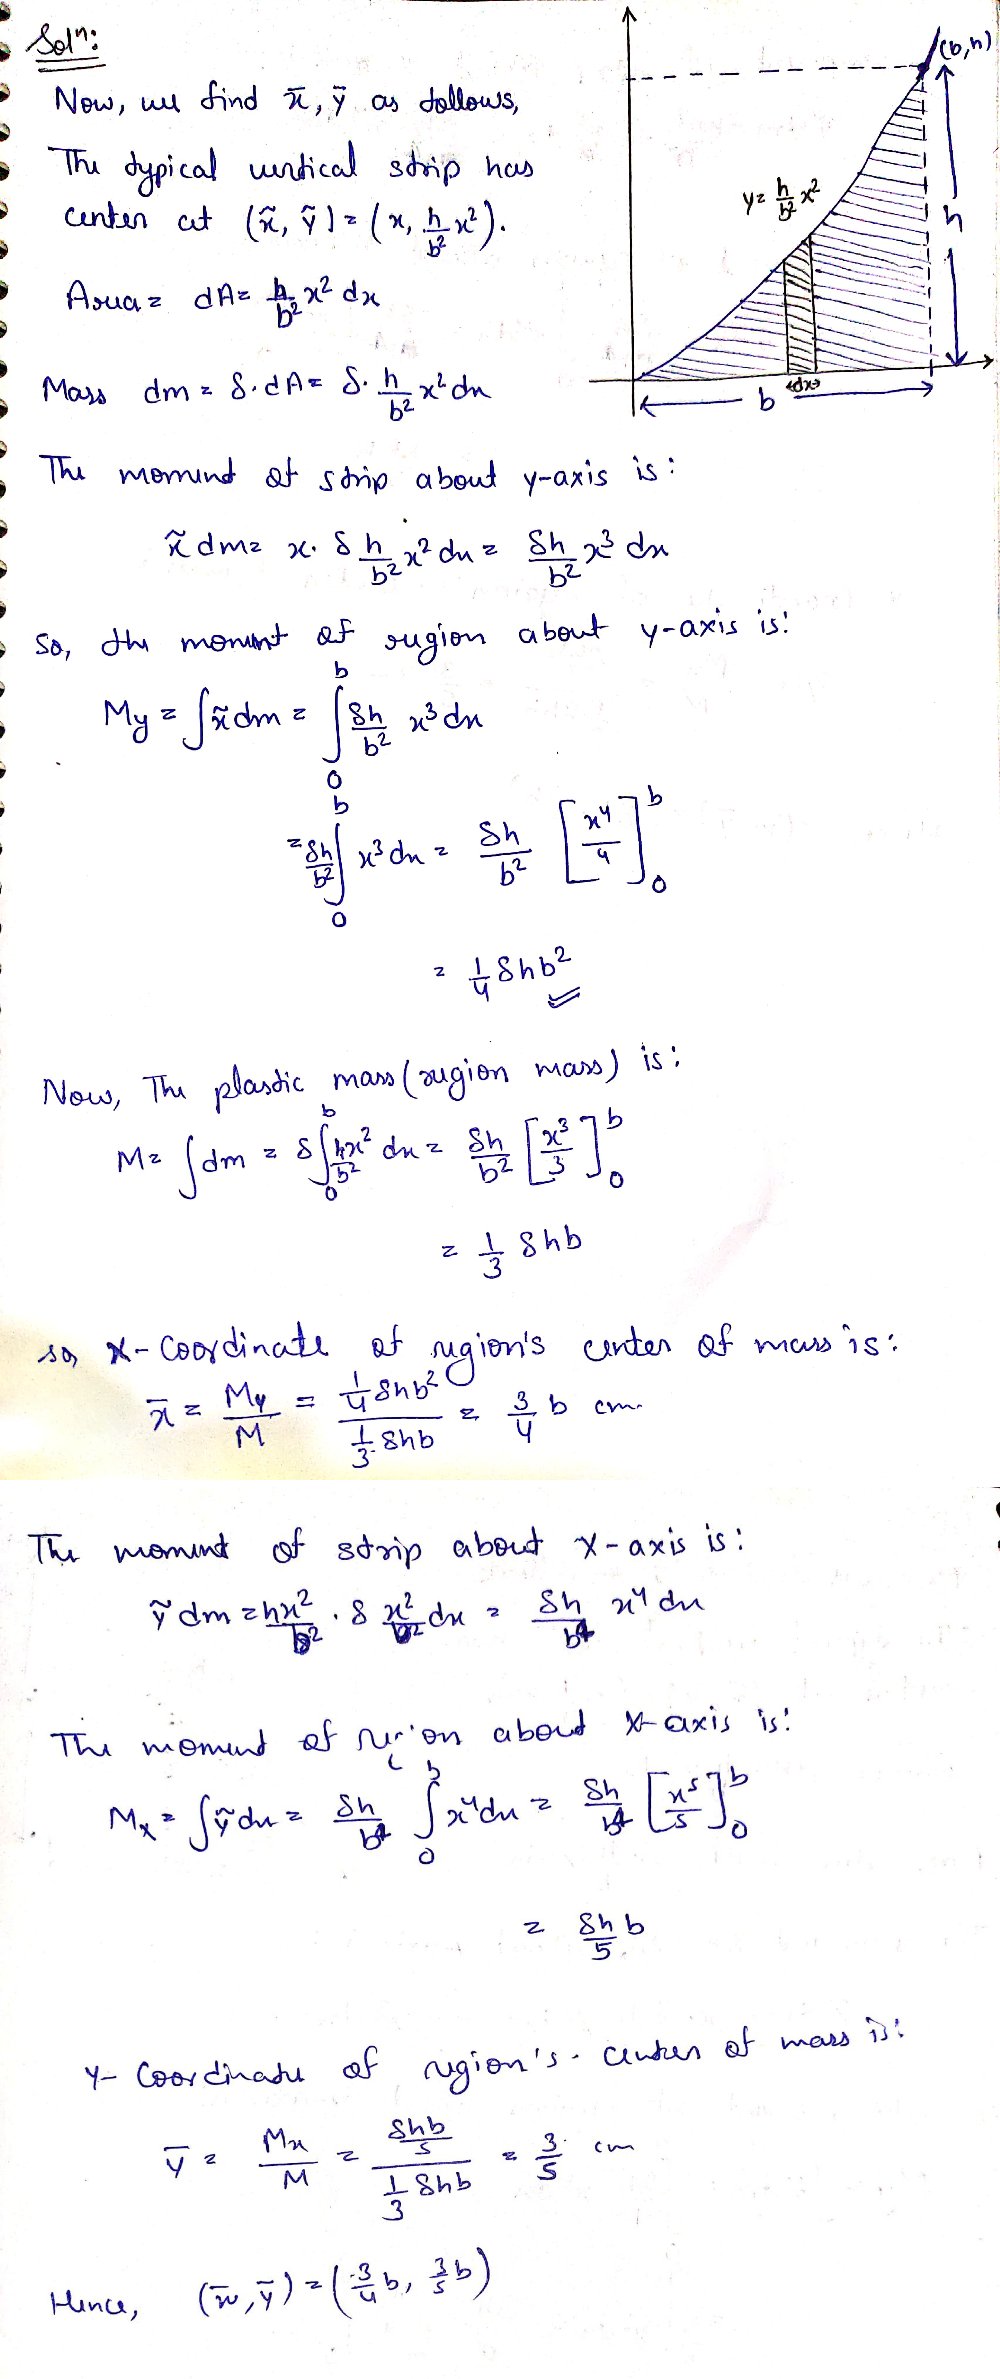 Solⁿ:
(b,h)
Now, we find x̄, ȳ as follows,
The typical vertical strip has
center at (x̃, ỹ) = (x, h/b² x²).
y = h/b² x²
h
Area = dA = h/b² x² dx
Mass dm = δ·dA = δ· h/b² x² dx
dx
b
The moment of strip about y-axis is:
x̃ dm = x· δ h/b² x² dx = δh/b² x³ dx
So, the moment of region about y-axis is:
My = ∫ x̃ dm = ∫₀ᵇ δh/b² x³ dx
= δh/b² ∫₀ᵇ x³ dx = δh/b² [x⁴/4]₀ᵇ
= 1/4 δhb²
Now, The plastic mass (region mass) is:
M = ∫ dm = δ ∫₀ᵇ hx²/b² dx = δh/b² [x³/3]₀ᵇ
= 1/3 δhb
so, X-coordinate of region's center of mass is:
x̄ = My/M = (1/4 δhb²)/(1/3 δhb) = 3/4 b cm.
The moment of strip about X-axis is:
ỹ dm = hx²/b² · δ x²/b² dx = δh/b⁴ x⁴ dx
The moment of region about X-axis is:
Mx = ∫ ỹ dx = δh/b⁴ ∫₀ᵇ x⁴ dx = δh/b⁴ [x⁵/5]₀ᵇ
= δh/5 b
Y-Coordinate of region's center of mass is:
ȳ = Mx/M = (δhb/5)/(1/3 δhb) = 3/5 cm
Hence, (x̄, ȳ) = (3/4 b, 3/5 b)